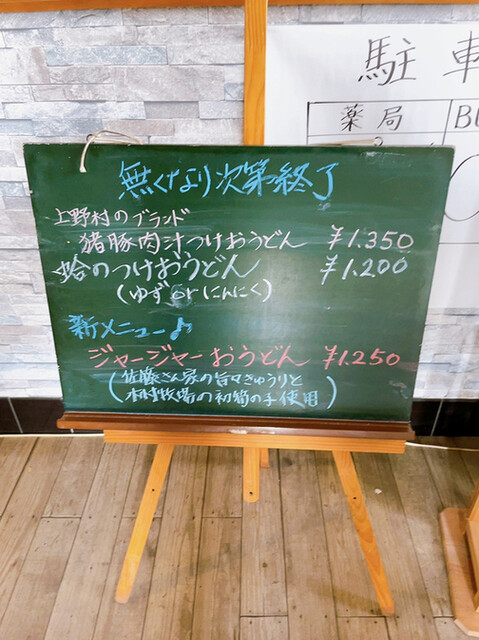 駐車
薬局
無くなり次第終了
上野村のブランド
猪豚肉汁つけおうどん ¥1.350
蛤のつけおうどん ¥1.200
(ゆず or にんにく)
新メニュー♪
ジャージャーおうどん ¥1.250
(佐藤さん家の旨々きゅうりと
木村牧場の初筍の子使用)